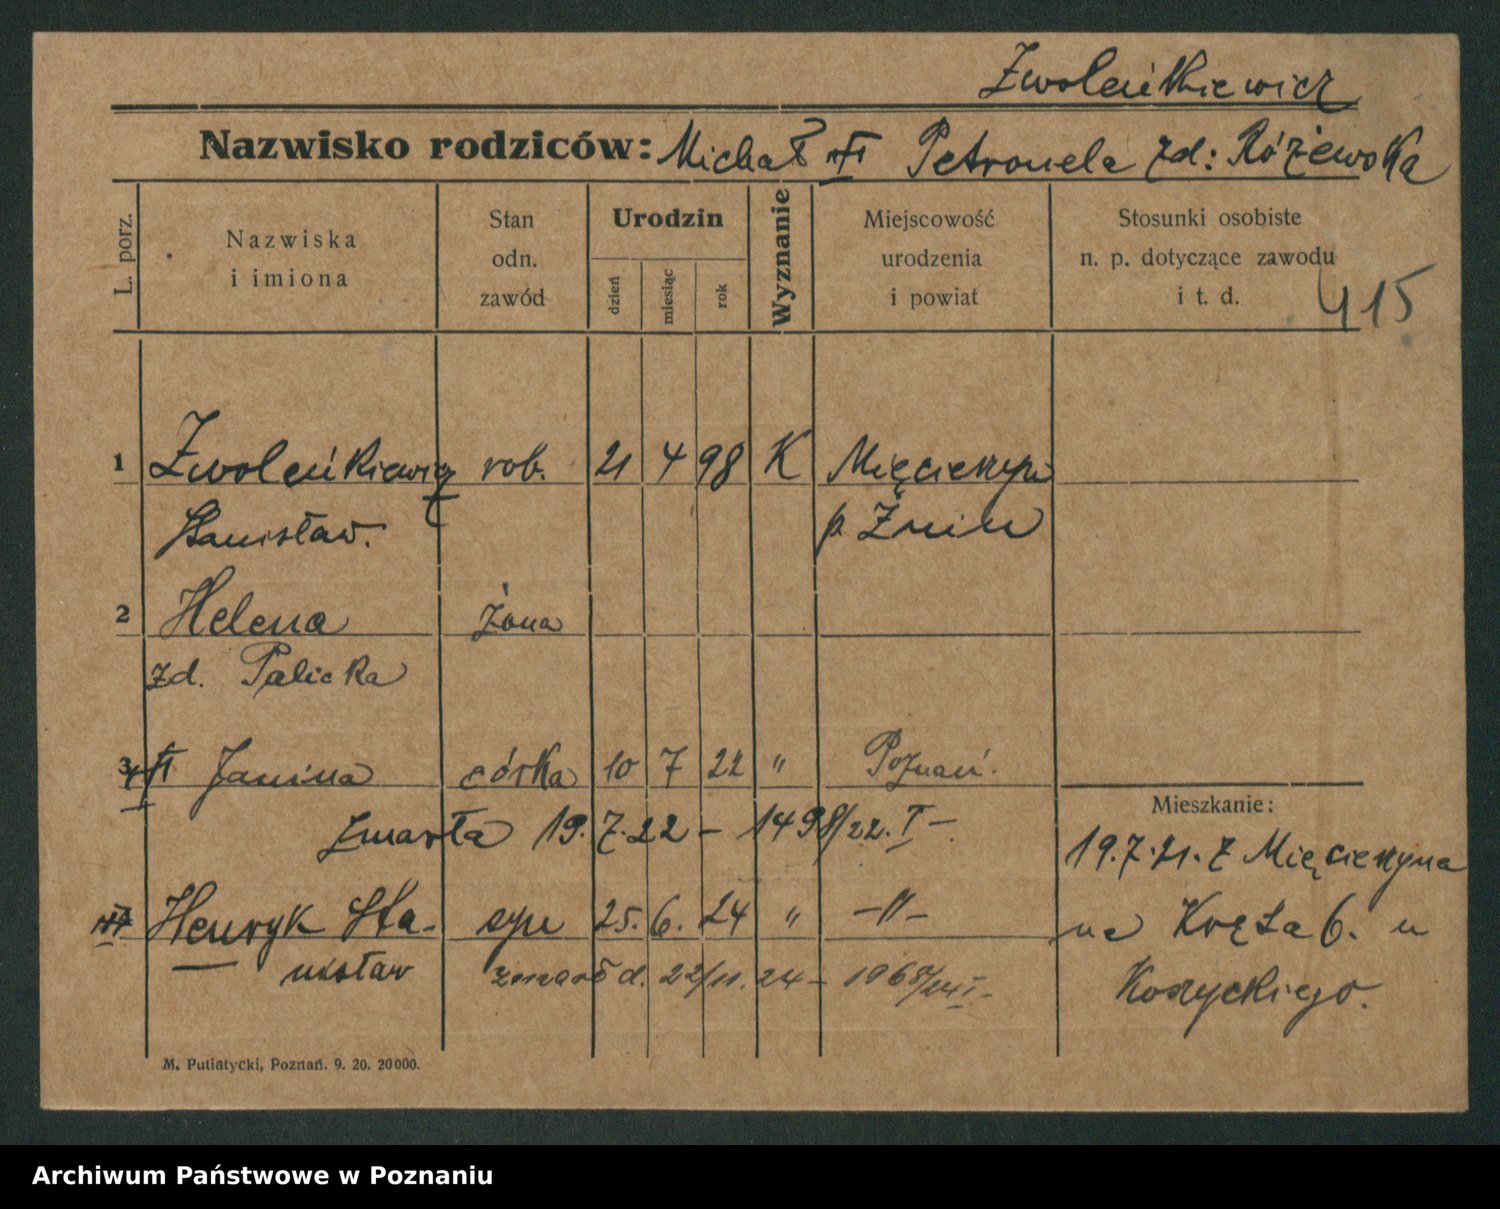 Zwoleńkiewicz
Nazwisko rodziców: Michał Petronela zd: Różewska
L. porz.
Nazwiska i imiona
Stan odn. zawód
Urodzin
dzień
miesiąc
rok
Wyznanie
Miejscowość urodzenia i powiat
Stosunki osobiste n. p. dotyczące zawodu i t. d.
415
1 Zwoleńkiewicz rob. 21 4 98 K Mięcierzyn
Stanisław. p. Żnin
2 Helena żona
zd. Palicka
3 Janina córka 10 7 22 " Poznań.
Mieszkanie:
zmarła 19. 7. 22 – 1498/22. I –
19.7.21. z Mięcierzyna
Henryk Sta- syn 25. 6. 24 " –"–
na Kręta 6. u
nisław zmarł d. 22/11. 24 – 1968/24 I.-
Koszyckiego.
M. Putiatycki, Poznań. 9. 20. 20000.
Archiwum Państwowe w Poznaniu